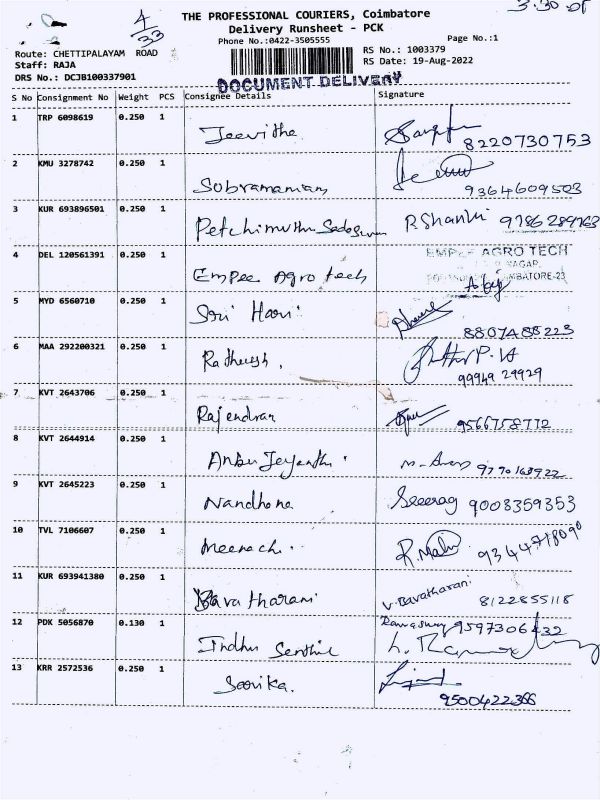 4/33
3.30
THE PROFESSIONAL COURIERS, Coimbatore
Delivery Runsheet - PCK
Phone No.:0422-3505555
Page No.:1
Route: CHETTIPALAYAM ROAD
RS No.: 1003379
Staff: RAJA
RS Date: 19-Aug-2022
DRS No.: DCJB100337901
DOCUMENT DELIVERY
S No Consignment No Weight PCS Consignee Details Signature
1 TRP 6098619 0.250 1 Jeevitha 8220730753
2 KMU 3278742 0.250 1 Subramaniam 9364609503
3 KUR 693896501 0.250 1 Petchimuthu R Shanthi 9786289763
4 DEL 120561391 0.250 1 Empee Agro tech
AGRO TECH
NAGAR,
5 MYD 6560710 0.250 1 Sri Hari 8807488223
6 MAA 292200321 0.250 1 99949 29929
7 KVT 2643706 0.250 1 Rajendran 9566758772
8 KVT 2644914 0.250 1 Anbu Jeyanthi
9 KVT 2645223 0.250 1 Nandhana 9003359353
10 TVL 7106607 0.250 1 Meenachi 9344718090
11 KUR 693941380 0.250 1 Bavatharani V. Bavatharani 8122855118
12 PDK 5056870 0.130 1 Indhu Senthil Ramasamy 9597306432
13 KRR 2572536 0.250 1 9500422366